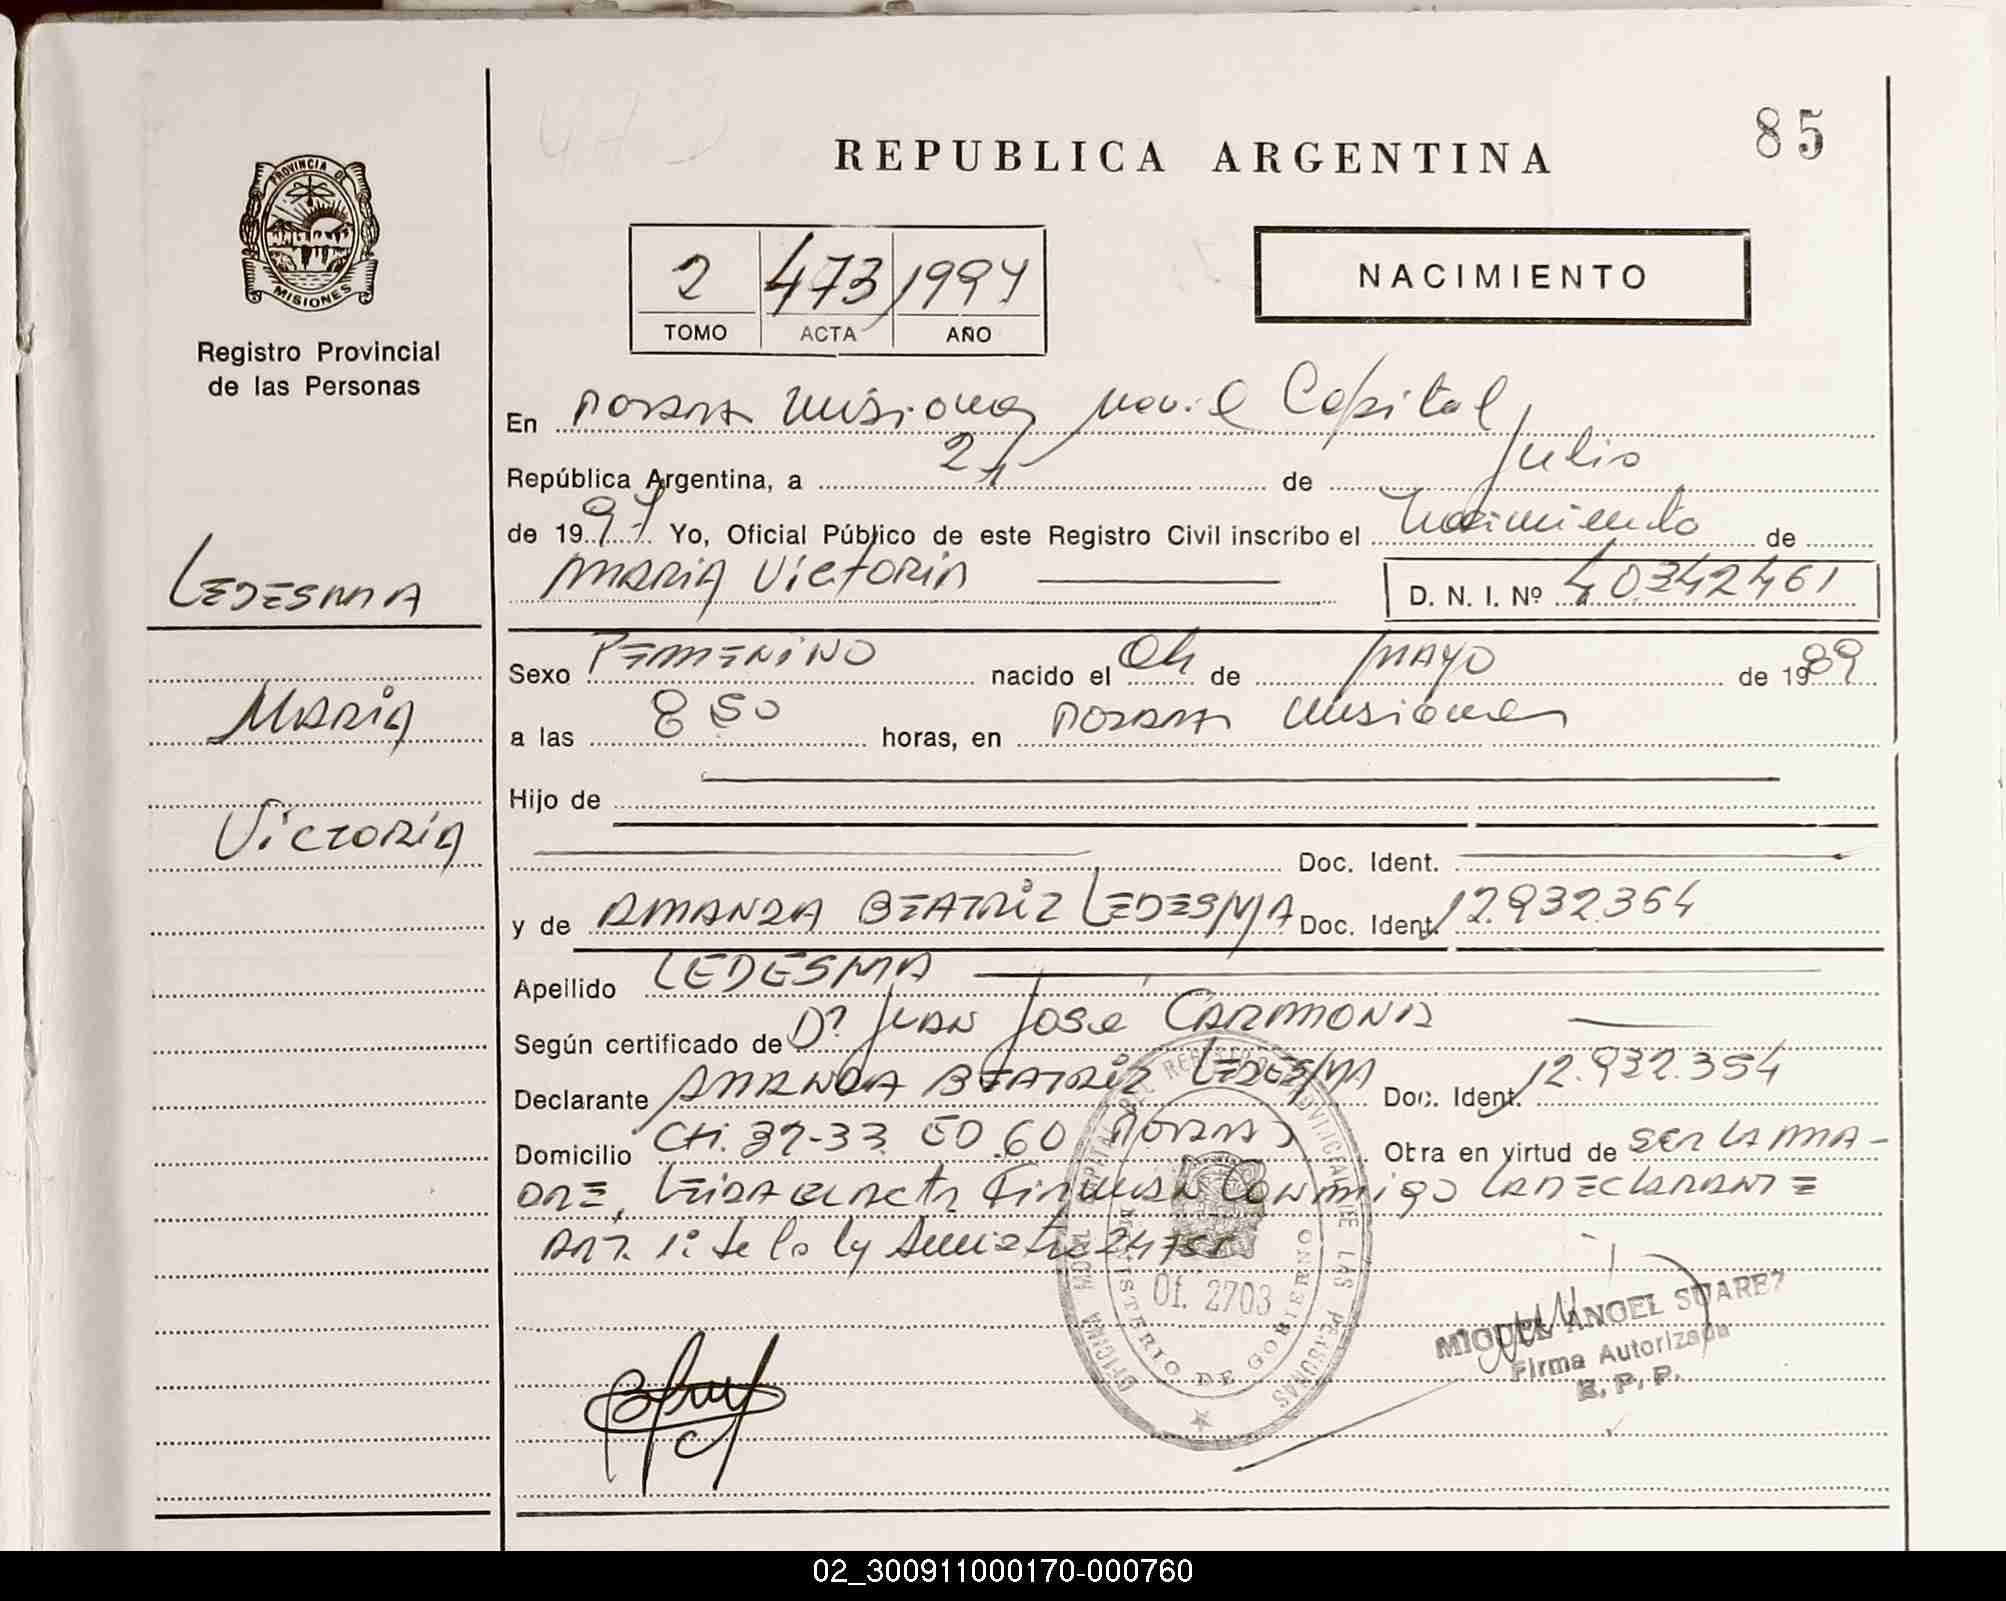 85
REPUBLICA ARGENTINA
PROVINCIA DE
MISIONES
Registro Provincial
de las Personas
2 473 1997
TOMO ACTA AÑO
NACIMIENTO
En Posadas Misiones Movil Capital,
República Argentina, a 21 de Julio
de 1997 Yo, Oficial Público de este Registro Civil inscribo el Nacimiento de
LEDESMA
MARIA VICTORIA D. N. I. Nº 40342461
Sexo FEMENINO nacido el 04 de MAYO de 1989
MARIA
a las 8 50 horas, en Posadas Misiones
Hijo de
VICTORIA
Doc. Ident.
y de AMANDA BEATRIZ LEDESMA Doc. Ident. 12.932354
Apellido LEDESMA
Según certificado de Dr JUAN JOSE CARMONA
Declarante AMANDA BEATRIZ LEDESMA Doc. Ident. 12.932.354
Domicilio CH. 32-33 ED 60 Posadas Obra en virtud de SER LA MA-
DRE, LEIDA el ACTA FIRMAN CONMIGO LA DECLARANTE
ART. 1º de la ley 24755
OFICINA MOVIL CAPITAL DEL REGISTRO PROVINCIAL DE LAS PERSONAS
MINISTERIO DE GOBIERNO
Of. 2703
MIGUEL ANGEL SUAREZ
Firma Autorizada
R. P. P.
02_300911000170-000760